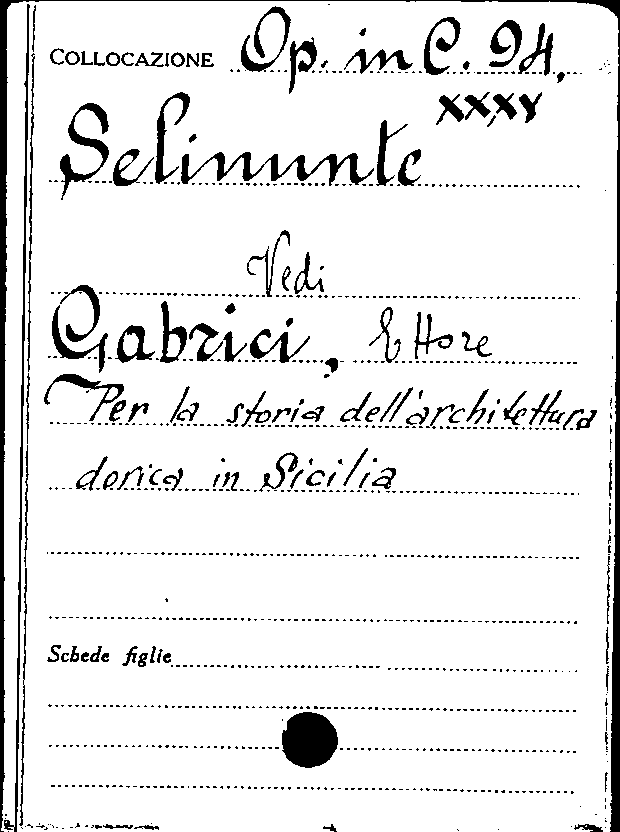 COLLOCAZIONE Op. in C. 94,
XXXV
Selinunte
Vedi
Gabrici, Ettore
Per la storia dell'architettura
dorica in Sicilia
Schede figlie